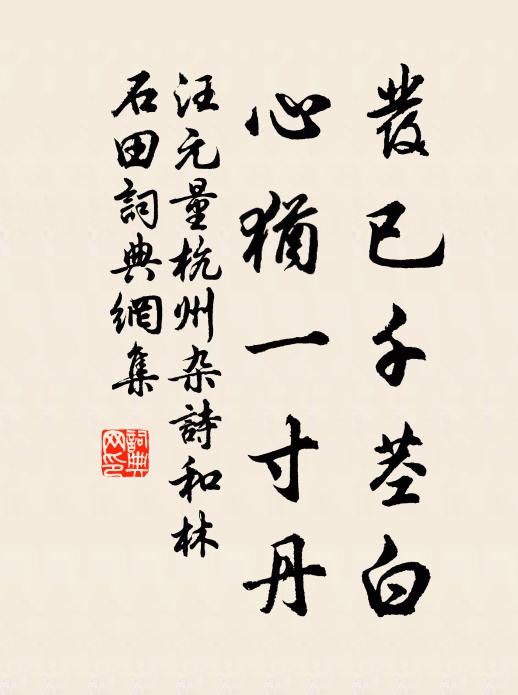 發已千莖白
心猶一寸丹
汪元量杭州杂詩和林
石田詞典網集
詞典
网印